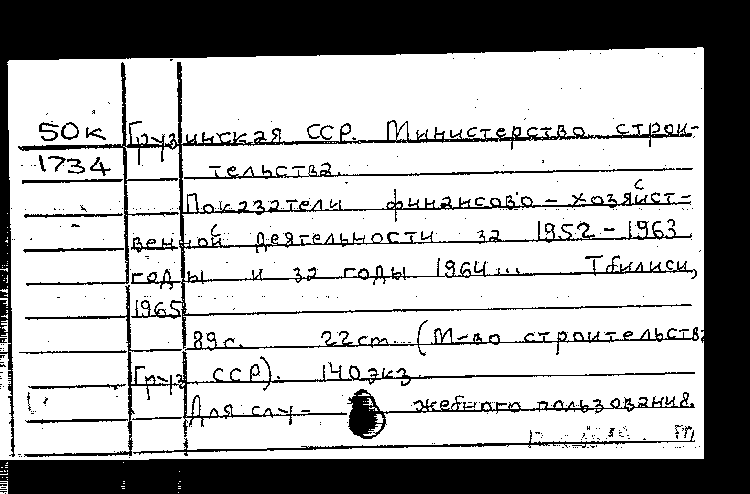 50к Грузинская ССР. Министерство строи-
1734 тельства.
Показатели финансово-хозяйст-
венной деятельности за 1952-1963
годы и за годы 1964... Тбилиси,
1965
89с. 22cm. (М-во строительства
Груз ССР). 140 экз.
Для слу- жебного пользования.